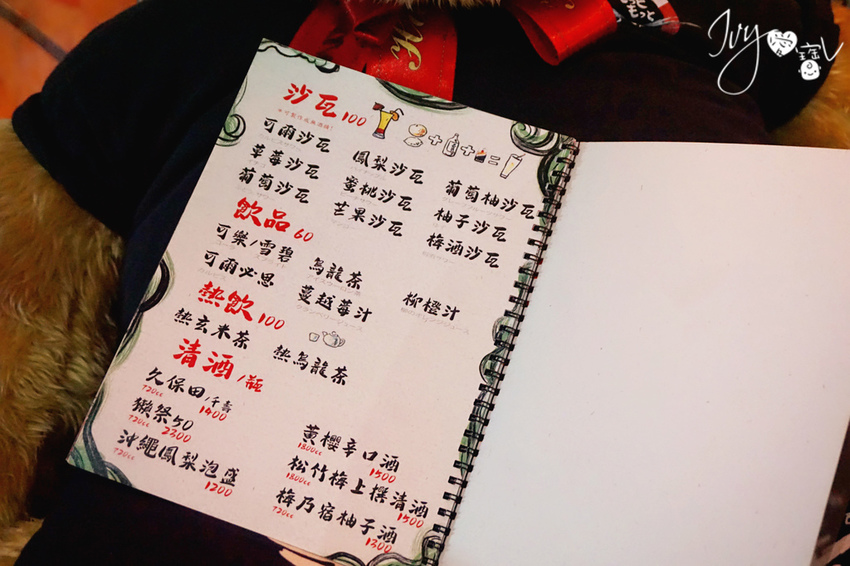 Ivy♡愛寶L
沙瓦100
可爾沙瓦
草莓沙瓦 鳳梨沙瓦
葡萄沙瓦 蜜桃沙瓦 葡萄柚沙瓦
芒果沙瓦 柚子沙瓦
梅酒沙瓦
飲品60
可樂/雪碧 烏龍茶
可爾必思 蔓越莓汁 柳橙汁
熱飲100
熱玄米茶 熱烏龍茶
清酒/瓶
久保田/千壽
720cc 1400
獺祭50
720cc 2300
沖繩鳳梨泡盛
720cc 1200
黃櫻辛口酒
1800cc 1500
松竹梅上撰清酒
1800cc 1500
梅乃宿柚子酒
720cc 1300